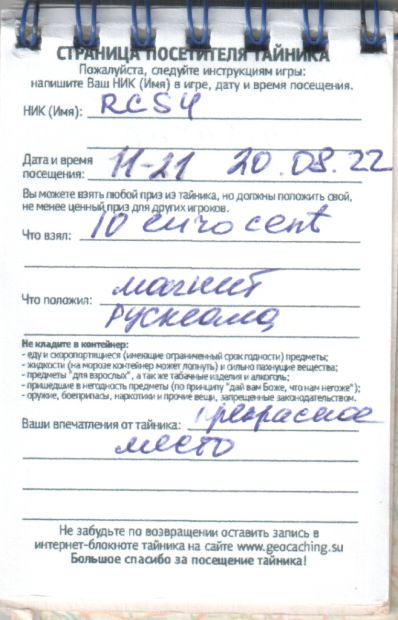 СТРАНИЦА ПОСЕТИТЕЛЯ ТАЙНИКА
Пожалуйста, следуйте инструкциям игры:
напишите Ваш НИК (Имя) в игре, дату и время посещения.
НИК (Имя): RCS4
Дата и время
посещения: 11-21 20.08.22
Вы можете взять любой приз из тайника, но должны положить свой,
не менее ценный приз для других игроков.
Что взял: 10 euro cent
Что положил: магнит
Рускеала
Не кладите в контейнер:
- еду и скоропортящиеся (имеющие ограниченный срок годности) предметы;
- жидкости (на морозе контейнер может лопнуть) и сильно пахнущие вещества;
- предметы "для взрослых", а так же табачные изделия и алкоголь;
- пришедшие в негодность предметы (по принципу "дай вам Боже, что нам негоже");
- оружие, боеприпасы, наркотики и прочие вещи, запрещенные законодательством.
Ваши впечатления от тайника: Прекрасное
место
Не забудьте по возвращении оставить запись в
интернет-блокноте тайника на сайте www.geocaching.su
Большое спасибо за посещение тайника!